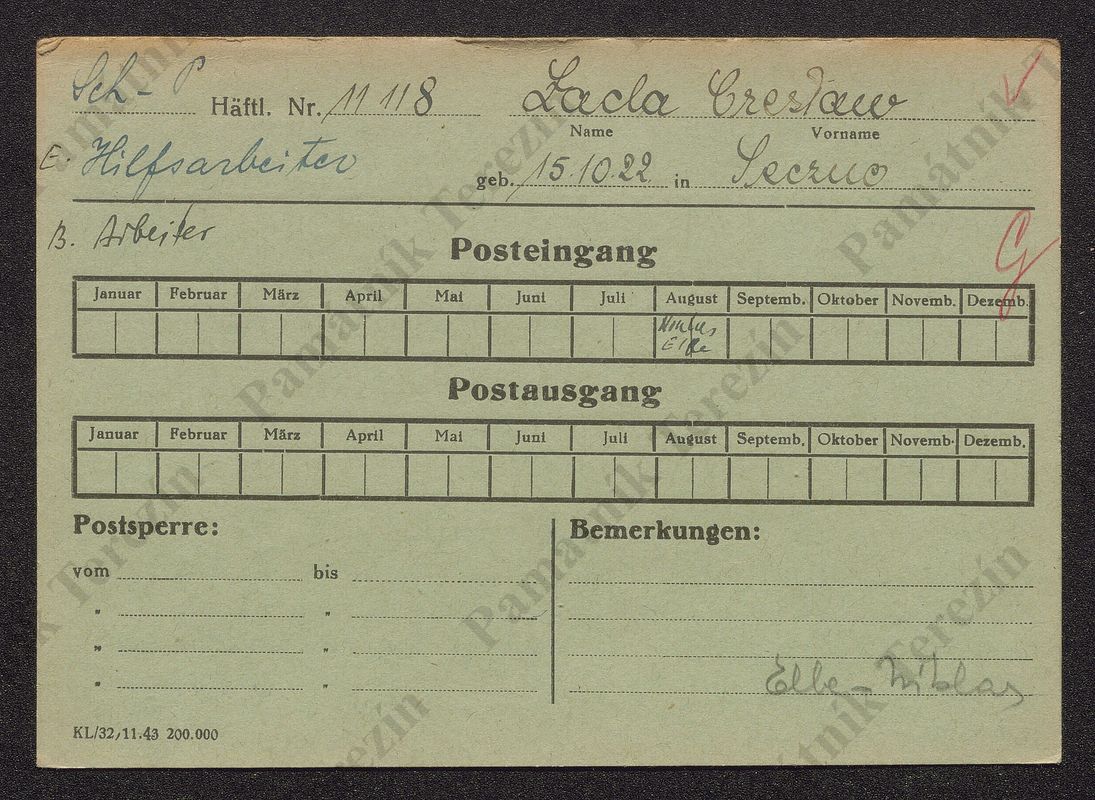 Sch - P Häftl. Nr. 11118 Zacla Czesław
Name Vorname
E. Hilfsarbeiter geb. 15.10.22 in
B. Arbeiter
Posteingang
G
Januar Februar März April Mai Juni Juli August Septemb. Oktober Novemb. Dezemb.
Elbe
Postausgang
Januar Februar März April Mai Juni Juli August Septemb. Oktober Novemb. Dezemb.
Postsperre: Bemerkungen:
vom bis
" "
" "
" "
Elbe - Niklas
KL/32,11.43 200.000
Památník Terezín